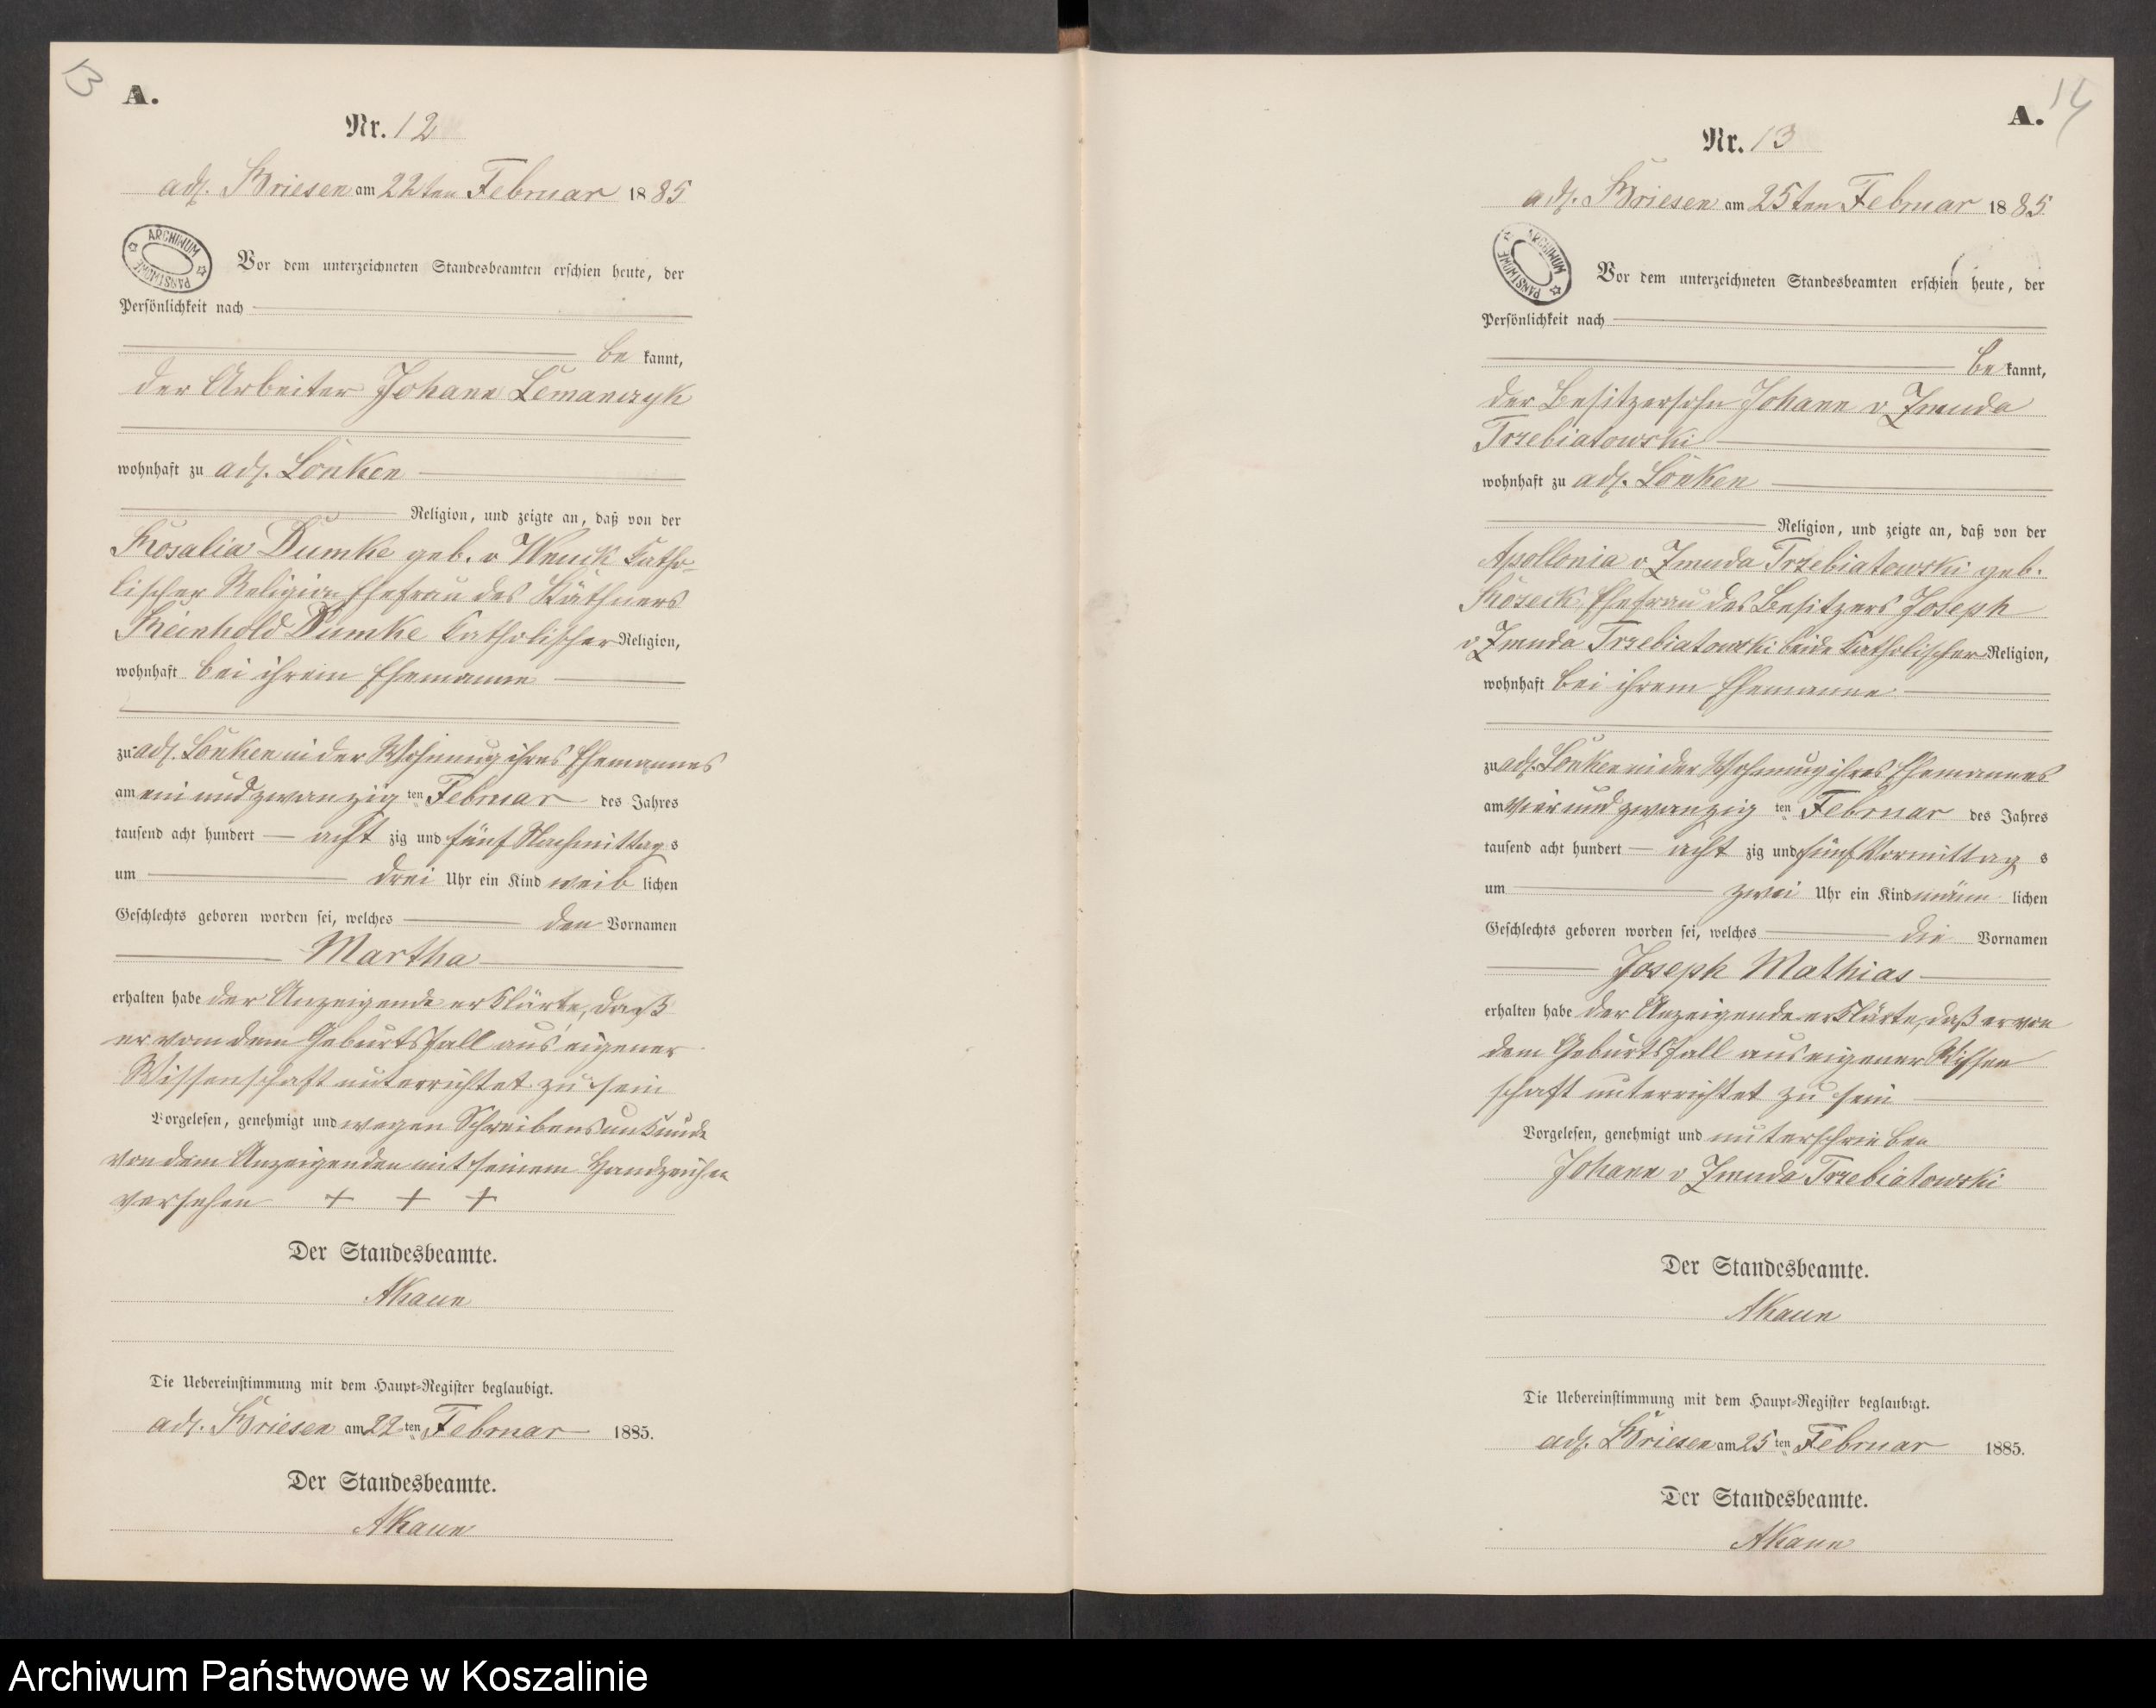 13
A.
Nr. 12
adl. Briesen am 22ten Februar 1885
ARCHIWUM PAŃSTWOWE
Vor dem unterzeichneten Standesbeamten erschien heute, der
Persönlichkeit nach
be kannt,
der Arbeiter Johann Lemanczyk
wohnhaft zu adl. Lonken
Religion, und zeigte an, daß von der
Rosalia Dumke geb. v Wnuck katho-
lischer Religion Ehefrau des Käthners
Reinhold Dumke katholischer Religion,
wohnhaft bei ihrem Ehemanne
zu adl. Lonken in der Wohnung ihres Ehemannes
am ein und zwanzig ten Februar des Jahres
tausend acht hundert acht zig und fünf Nachmittag s
um drei Uhr ein Kind weib lichen
Geschlechts geboren worden sei, welches den Vornamen
Martha
erhalten habe der Anzeigende erklärte, daß
er von dem Geburtsfall aus eigener
Wissenschaft unterrichtet zu sein
Vorgelesen, genehmigt und wegen Schreibensunkunde
von dem Anzeigenden mit seinem Handzeichen
versehen + + +
Der Standesbeamte.
AKaun
Die Uebereinstimmung mit dem Haupt-Register beglaubigt.
adl. Briesen am 22 ten Februar 1885.
Der Standesbeamte.
AKaun
14
A.
Nr. 13
adl. Briesen am 25ten Februar 1885
ARCHIWUM PAŃSTWOWE
Vor dem unterzeichneten Standesbeamten erschien heute, der
Persönlichkeit nach
be kannt,
der Besitzersohn Johann v Zmuda
Trzebiatowski
wohnhaft zu adl. Lonken
Religion, und zeigte an, daß von der
Apollonia v Zmuda Trzebiatowski geb.
Ehefrau des Besitzers Joseph
v Zmuda Trzebiatowski beide katholischer Religion,
wohnhaft bei ihrem Ehemanne
zu adl. Lonken in der Wohnung ihres Ehemannes
am vier und zwanzig ten Februar des Jahres
tausend acht hundert acht zig und fünf Vormittag s
um zwei Uhr ein Kind männ lichen
Geschlechts geboren worden sei, welches die Vornamen
Joseph Mathias
erhalten habe der Anzeigende erklärte, daß er von
dem Geburtsfall aus eigener Wissen
schaft unterrichtet zu sein
Vorgelesen, genehmigt und unterschrieben
Johann v Zmuda Trzebiatowski
Der Standesbeamte.
AKaun
Die Uebereinstimmung mit dem Haupt-Register beglaubigt.
adl. Briesen am 25 ten Februar 1885.
Der Standesbeamte.
AKaun
Archiwum Państwowe w Koszalinie